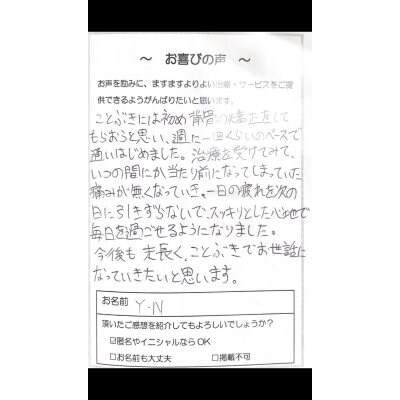 ～ お喜びの声 ～
お声を励みに、ますますよりよい治療・サービスをご提
供できるようがんばりたいと思います。
ことぶきには初め背骨の矯正をして
もらおうと思い、週に一回くらいのペースで
通いはじめました。治療を受けてみて、
いつの間にか当たり前になってしまっていた
痛みが無くなっていき、一日の疲れを次の
日に引きずらないで、スッキリとした心地で
毎日を過ごせるようになりました。
今後も末長く、ことぶきでお世話に
なっていきたいと思います。
お名前 Y-N
頂いたご感想を紹介してもよろしいでしょうか?
☑匿名やイニシャルなら OK
□お名前も大丈夫 □掲載不可